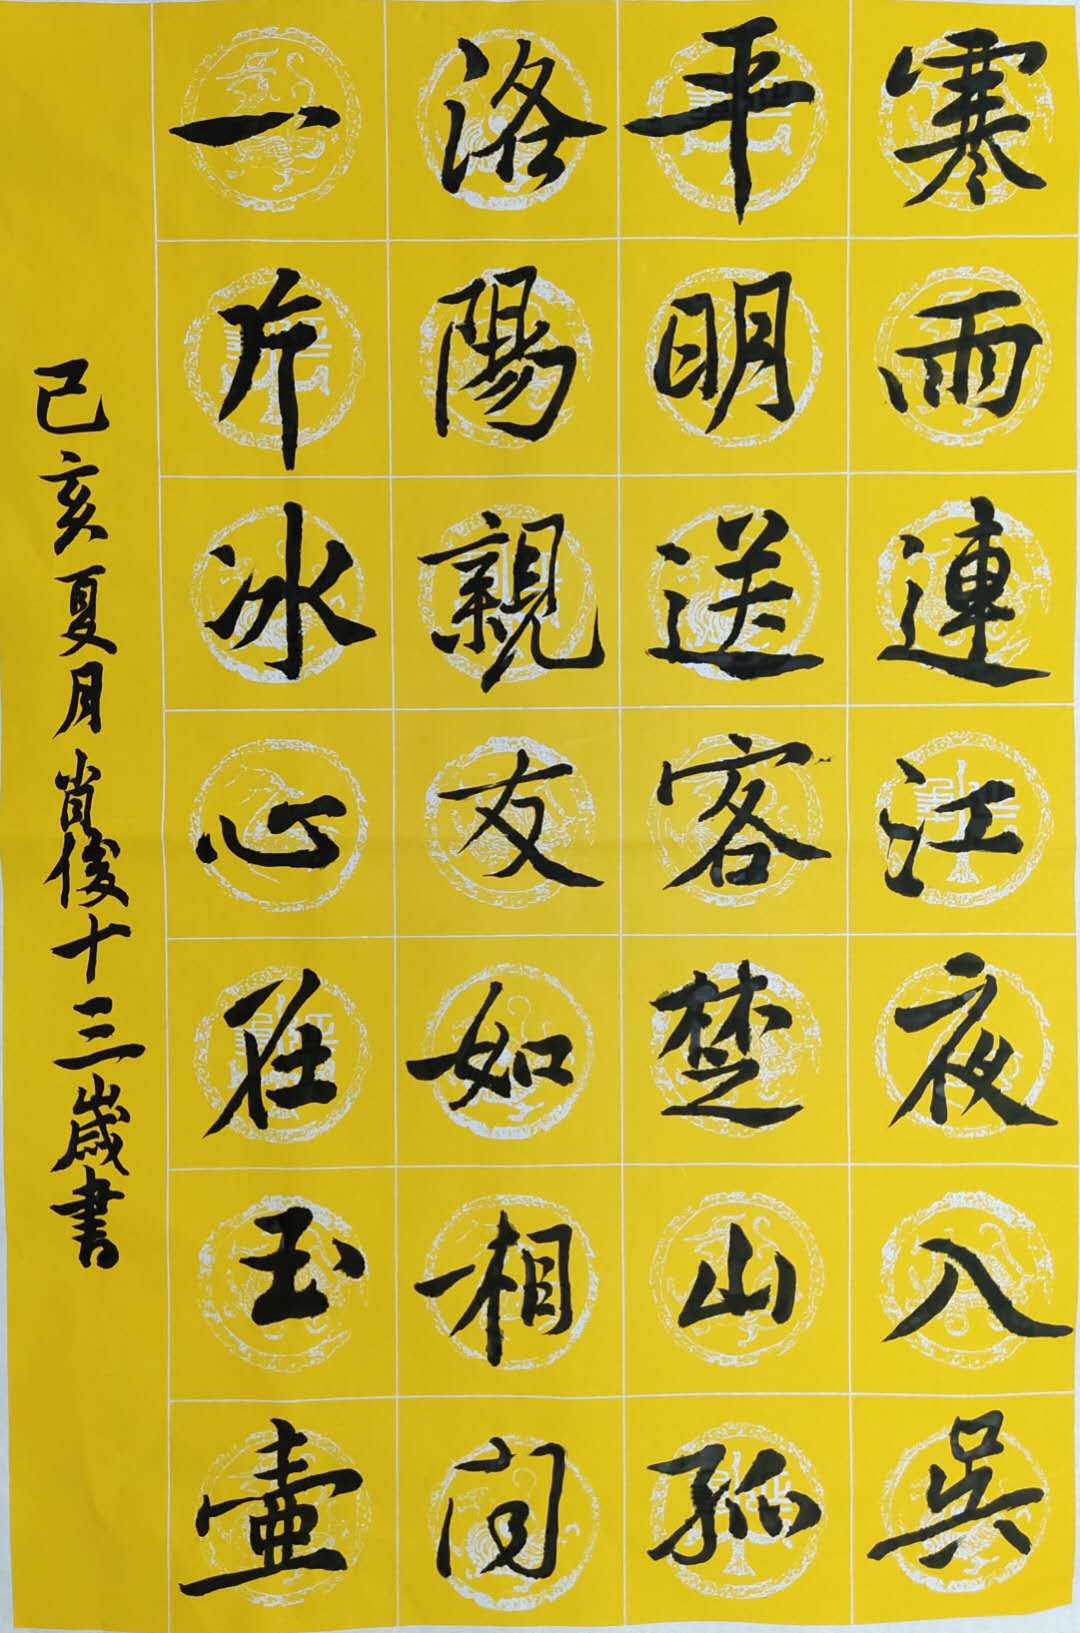 寒雨連江夜入吳
平明送客楚山孤
洛陽親友如相问
一片冰心在玉壺
己亥夏月肖俊十三歲書